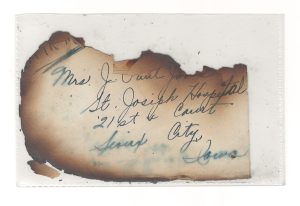 Mrs. J. Paul
St. Joseph Hospital
21st & Court
Sioux City,
Iowa